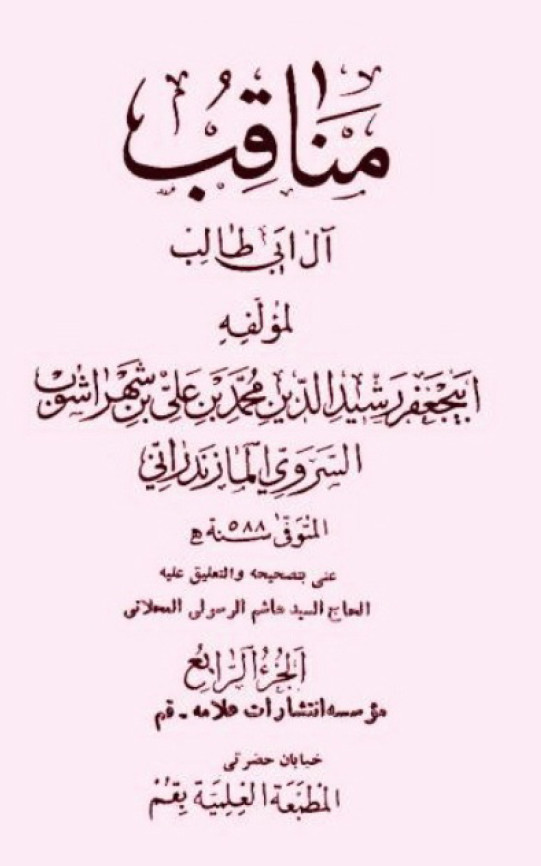 مَنَاقِبُ
آل أبي طَالِب
لمؤلّفِهِ
ابيجَعْفَر رَشيدِ الدّينِ مُحَمَّدِ بْنِ عَلِيِّ بْنِ شَهْرِاشوُب
السَّرَوِيِّ المازَندَرانِيّ
المتوفّى سنة ٥٨٨ ه
عنى بتصحيحه والتعليق عليه
الحاج السيد هاشم الرسولى المحلاتى
الجُزءُ الرّابِعُ
مؤسسه انتشارات علامه - قم
خيابان حضرتى
المَطْبَعَة العِلمِيّة بِقُمْ